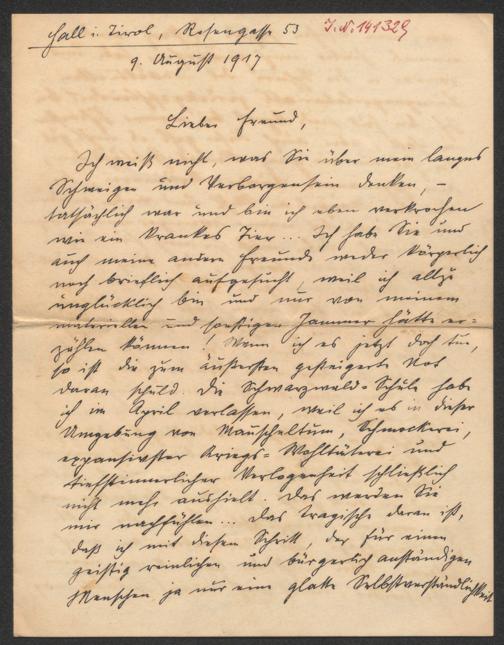 Hall i. Tirol, Rosengasse 53
I.N. 141329
9. August 1917
Lieber Freund,
Ich weiß nicht, was Sie über mein langes
Schweigen und Verborgensein denken, –
tatsächlich war und bin ich eben verkrochen
wie ein krankes Tier... Ich habe Sie und
auch meine andern Freunde weder körperlich
noch brieflich aufgesucht, weil ich allzu
unglücklich bin und nur von meinem
materiellen und sonstigen Jammer hätte er=
zählen können! Wenn ich es jetzt doch tue,
so ist die zum äußersten gesteigerte Not
daran schuld. Die Schwarzwald=Schule habe
ich im April verlassen, weil ich es in dieser
Umgebung von Mauscheltum, Schmockerei,
expansivster Kriegs=Wohltäterei und
tiefstinnerlicher Verlogenheit schließlich
nicht mehr aushielt. Das werden Sie
mir nachfühlen... Das Tragische daran ist,
daß ich mit diesem Schritt, der für einen
geistig reinlichen und bürgerlich anständigen
Menschen ja nur eine glatte Selbstverständlichkeit